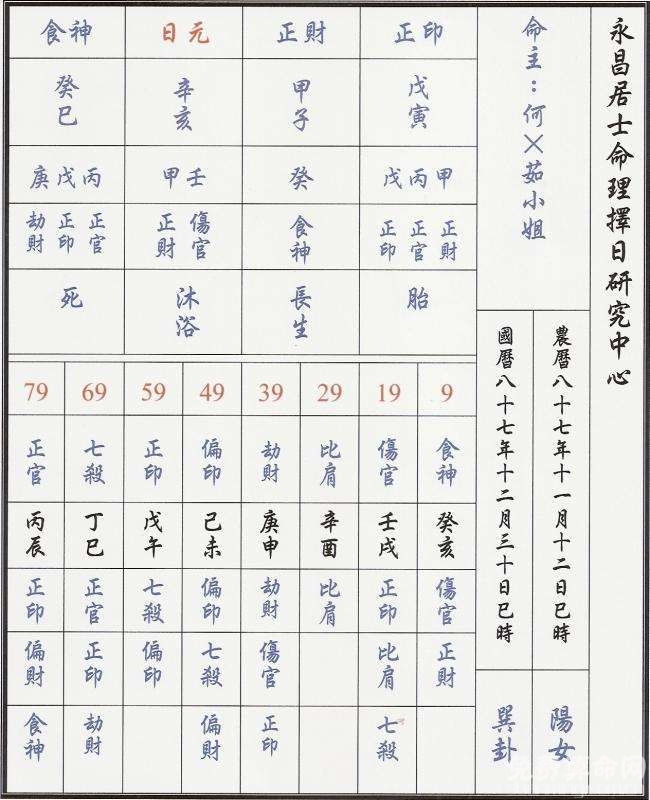 永昌居士命理擇日研究中心
命主：何×茹小姐
農曆八十七年十一月十二日巳時
國曆八十七年十二月三十日巳時
陽女
巽卦
食神 日元 正財 正印
癸巳 辛亥 甲子 戊寅
庚戊丙 甲壬 癸 戊丙甲
劫財 正印 正官 正財 傷官 食神 正印 正官 正財
死 沐浴 長生 胎
79 69 59 49 39 29 19 9
正官 七殺 正印 偏印 劫財 比肩 傷官 食神
丙辰 丁巳 戊午 己未 庚申 辛酉 壬戌 癸亥
正印 正官 七殺 偏印 劫財 比肩 正印 傷官
偏財 正印 偏印 七殺 傷官 比肩 正財
食神 劫財 偏財 正印 七殺
免费算命网